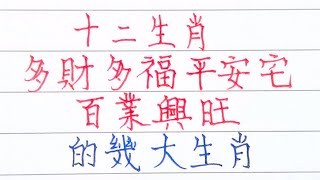 十二生肖
多財多福平安宅
百業興旺
的幾大生肖